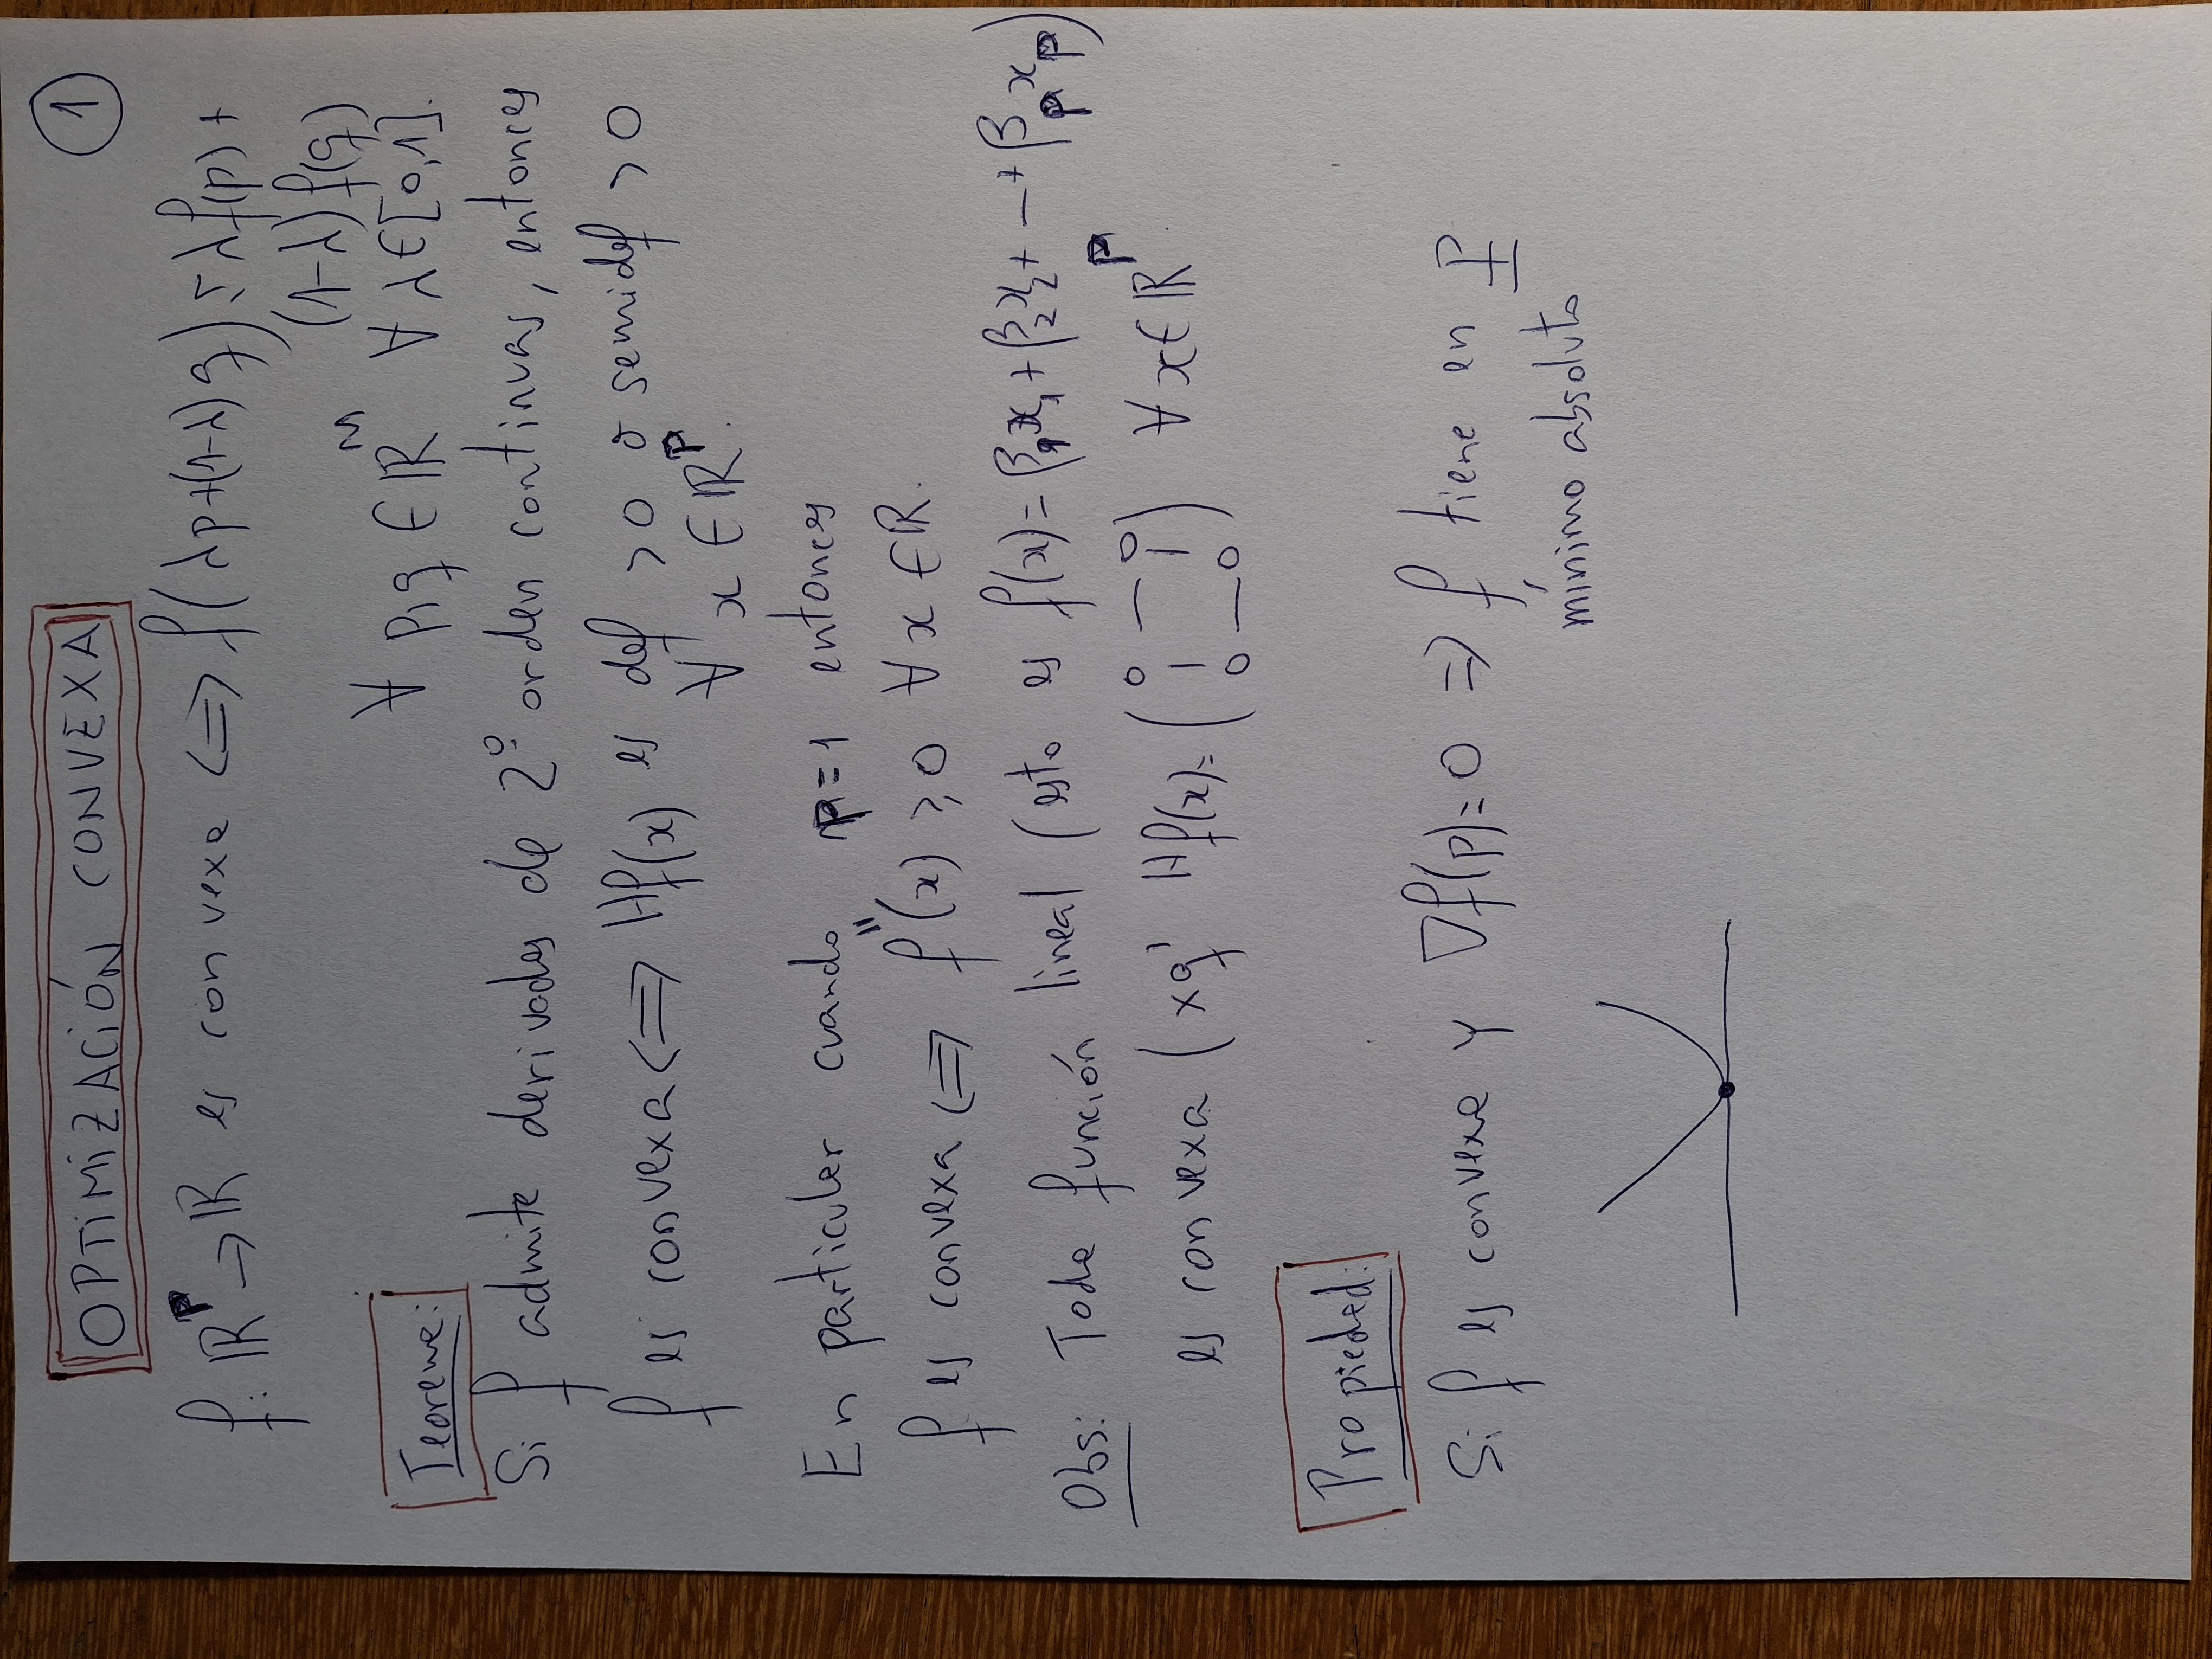 OPTIMIZACIÓN CONVEXA
1
f: ℝᵖ → ℝ es convexa ⟺ f(λp+(1-λ)q) ≤ λf(p) +
(1-λ)f(q)
∀ p,q ∈ ℝⁿ ∀ λ∈[0,1].
Teorema:
Si f admite derivadas de 2º orden continuas, entonces
f es convexa ⟺ Hf(x) es def >0 o semidef >0
∀ x ∈ ℝᵖ.
En particular cuando p=1 entonces
f es convexa ⟺ f''(x) ≥ 0 ∀ x ∈ ℝ.
Obs: Toda función lineal (esto es f(x)= β₁x₁ + β₂x₂ + — + βₚxₚ)
es convexa (xq' Hf(x)= (0 — 0 | | 0 — 0) ∀ x ∈ ℝᵖ.
Propiedad:
Si f es convexa y ∇f(p)=0 ⇒ f tiene en p
mínimo absoluto